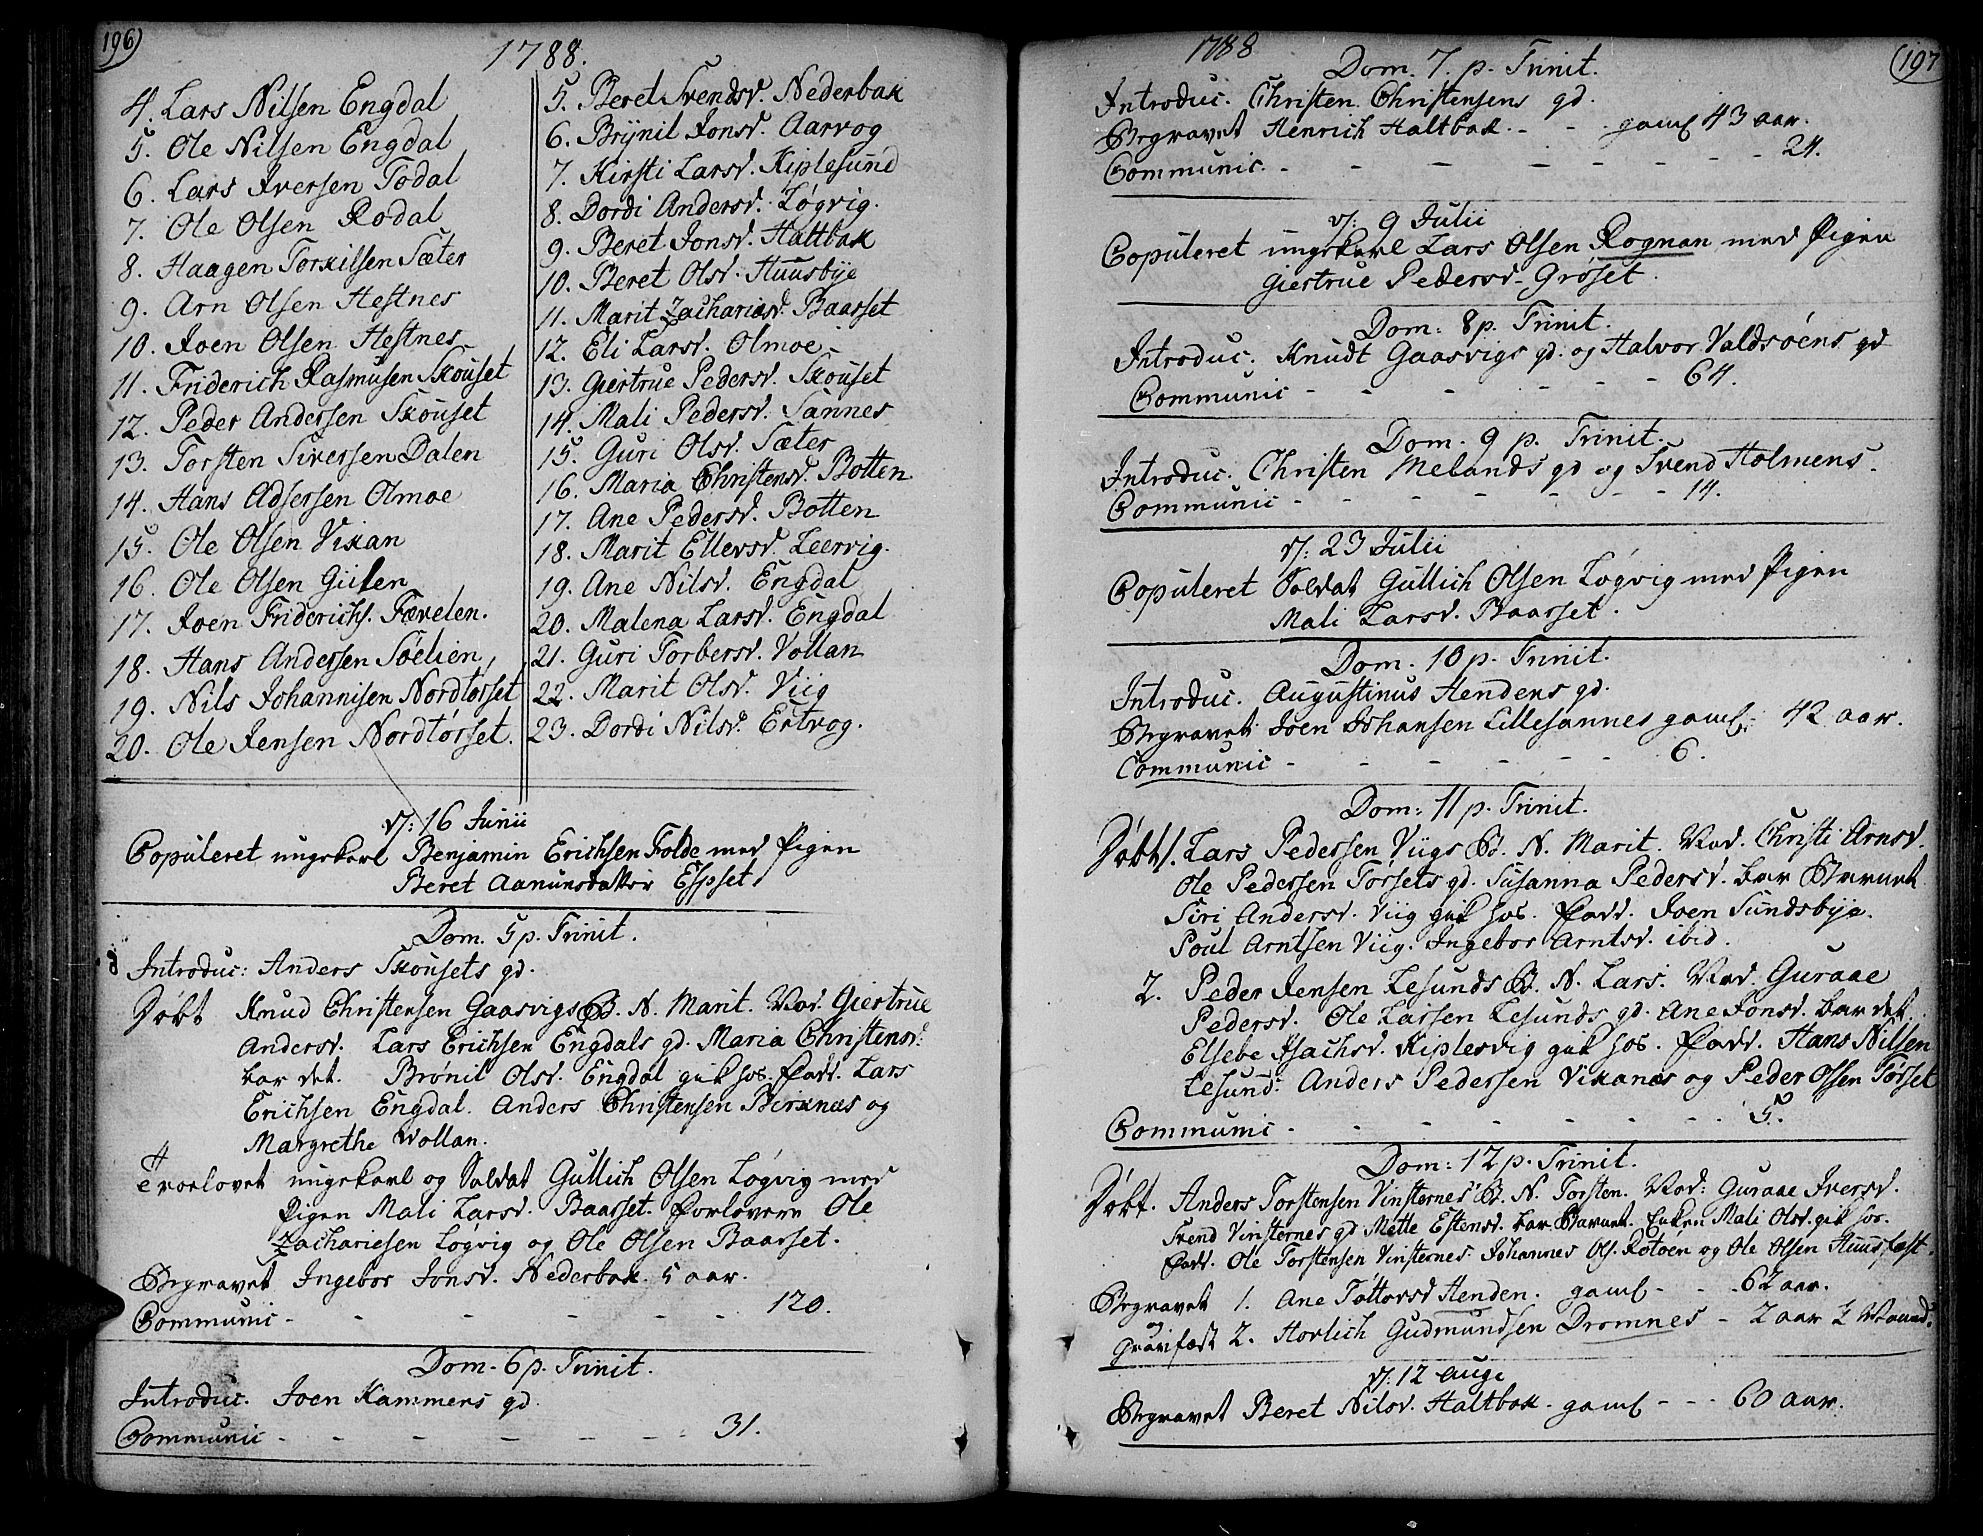 196)
1788.
4. Lars Nilsen Engdal
5. Ole Nilsen Engdal
6. Lars Iversen Todal
7. Ole Olsen Rodal
8. Haagen Torkilsen Sæter
9. Arn Olsen Hestnes
10. Joen Olsen Hestnes
11. Friderich Rasmusen Skouset
12. Peder Andersen Skouset
13. Torsten Siversen Dalen
14. Hans Adsersen Olmoe
15. Ole Olsen Vikan
16. Ole Olsen Giilen
17. Joen Friderichs. Færelen.
18. Hans Andersen Søelien
19. Nils Johannisen Nordtørset
20. Ole Jensen Nordtørset.
5. Beret Svendsd. Nederbak
6. Brynil Jonsd. Aarvog
7. Kirsti Larsd. Kiplesund
8. Dordi Andersd. Løgvig.
9. Beret Jonsd. Haltbak
10. Beret Olsd. Huusbye
11. Marit Zachariæsd. Baarset
12. Eli Larsd. Olmoe
13. Giertrue Pedersd. Skouset
14. Mali Pedersd. Sannes
15. Guri Olsd. Sæter
16. Maria Christensd. Botten
17. Ane Pedersd. Botten
18. Marit Ellevsd. Leervig.
19. Ane Nilsd. Engdal
20. Malena Larsd. Engdal
21. Guri Torbersd. Vollan
22. Marit Olsd. Viig
23. Dordi Nilsd. Ertvog.
d. 16 Junii
Copuleret ungekarl Benjamin Erichsen Folde med Pigen
Beret Aanunsdatter Espset
Dom. 5 p. Trinit.
Introduc: Anders Skousets qd.
Døbt Knud Christensen Gaasvigs B. N. Marit. Mod. Giertrue
Andersd. Lars Erichsen Engdals qd. Maria Christensd.
bar det. Brønil Olsd. Engdal gik hos. Fadd. Lars
Erichsen Engdal. Anders Christensen Birknæs og
Margrethe Vollan.
Troelovet ungekarl og Soldat Gullich Olsen Løgvig med
Pigen Mali Larsd. Baarset. Forlovere Ole
Zachariesen Løgvig og Ole Olsen Baarset.
Begravet Ingebor Jonsd. Nederbak. 5 aar.
Communic - - - - - - 120.
Dom. 6 p. Trinit.
Introduc. Joen Kammens qd.
Communic - - - - - - 31.
1788
(197
Dom. 7. p. Trinit.
Introduc. Christen Christensens qd.
Begravet Henrich Haltbak - - gaml 43 aar.
Communic. - - - - - - - 24.
d. 9 Julii
Copuleret ungekarl Lars Olsen Rognan med Pigen
Giertrue Pedersd. Grøset.
Dom: 8 p. Trinit.
Introduc. Knudt Gaasvigs qd. og Halvor Valdsøens qd
Communic - - - - - - 64.
Dom. 9 p. Trinit.
Introduc. Christen Melands qd og Svend Holmens.
Communic - - - - - - 14.
d. 23 Julii
Copuleret Soldat Gullich Olsen Løgvig med Pigen
Mali Larsd. Baarset.
Dom. 10 p. Trinit.
Introduc. Augustinus Hendens qd.
Begravet Joen Johansen Lillesannes gaml: 42 aar.
Communic - - - - - - 6.
Dom: 11 p. Trinit.
Døbt 1. Lars Pedersen Viigs B. N. Marit. Mod. Christi Arnsd.
Ole Pedersen Torsets qd. Susanna Pedersd. bar Barnet
Siri Andersd. Viig gik hos. Fadd. Joen Sundsbye.
Poul Arntsen Viig. Ingebor Arntsd. ibid.
2. Peder Jensen Lesunds B. N. Lars. Mod. Guraae
Pedersd. Ole Larsen Lesunds qd. Ane Jonsd. bar det.
Elsebe Isachsd. Kiplesvig gik hos. Fadd. Hans Nilsen
Lesund: Anders Pedersen Vikanæs og Peder Olsen Tørset
Communic - - - - - - 5.
Dom: 12 p. Trinit.
Døbt. Anders Torstensen Vinsternes B. N. Torsten. Mod: Guraae Iversd.
Svend Vinsternes qd Mette Estensd. bar Barnet. Enken Mali Olsd. gik hos.
Fadd. Ole Torstensen Vinsternes Johannes Ols. Rotøen og Ole Olsen Huusfæst.
Begravet 1. Ane Tottorsd Henden. gaml - - 62 aar.
og
Gravfæst 2. Horlich Gudmundsen Dromnes - 2 aar 2 Maand.
d. 12 Augi
Begravet Beret Nilsd. Haltbak. gaml - - - 60 aar.